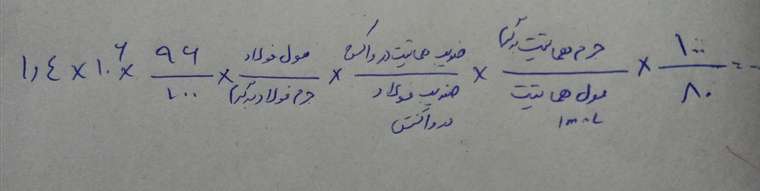 ۱٫۴ × ۱۰^۶ × ۹۶/۱۰۰ × مول فولاد/جرم فولاد به گرم × ضریب هماتیت در واکنش/ضریب فولاد در واکنش × جرم هماتیت به گرم/مول هماتیت × ۱۰۰/۸۰ =
۱mol